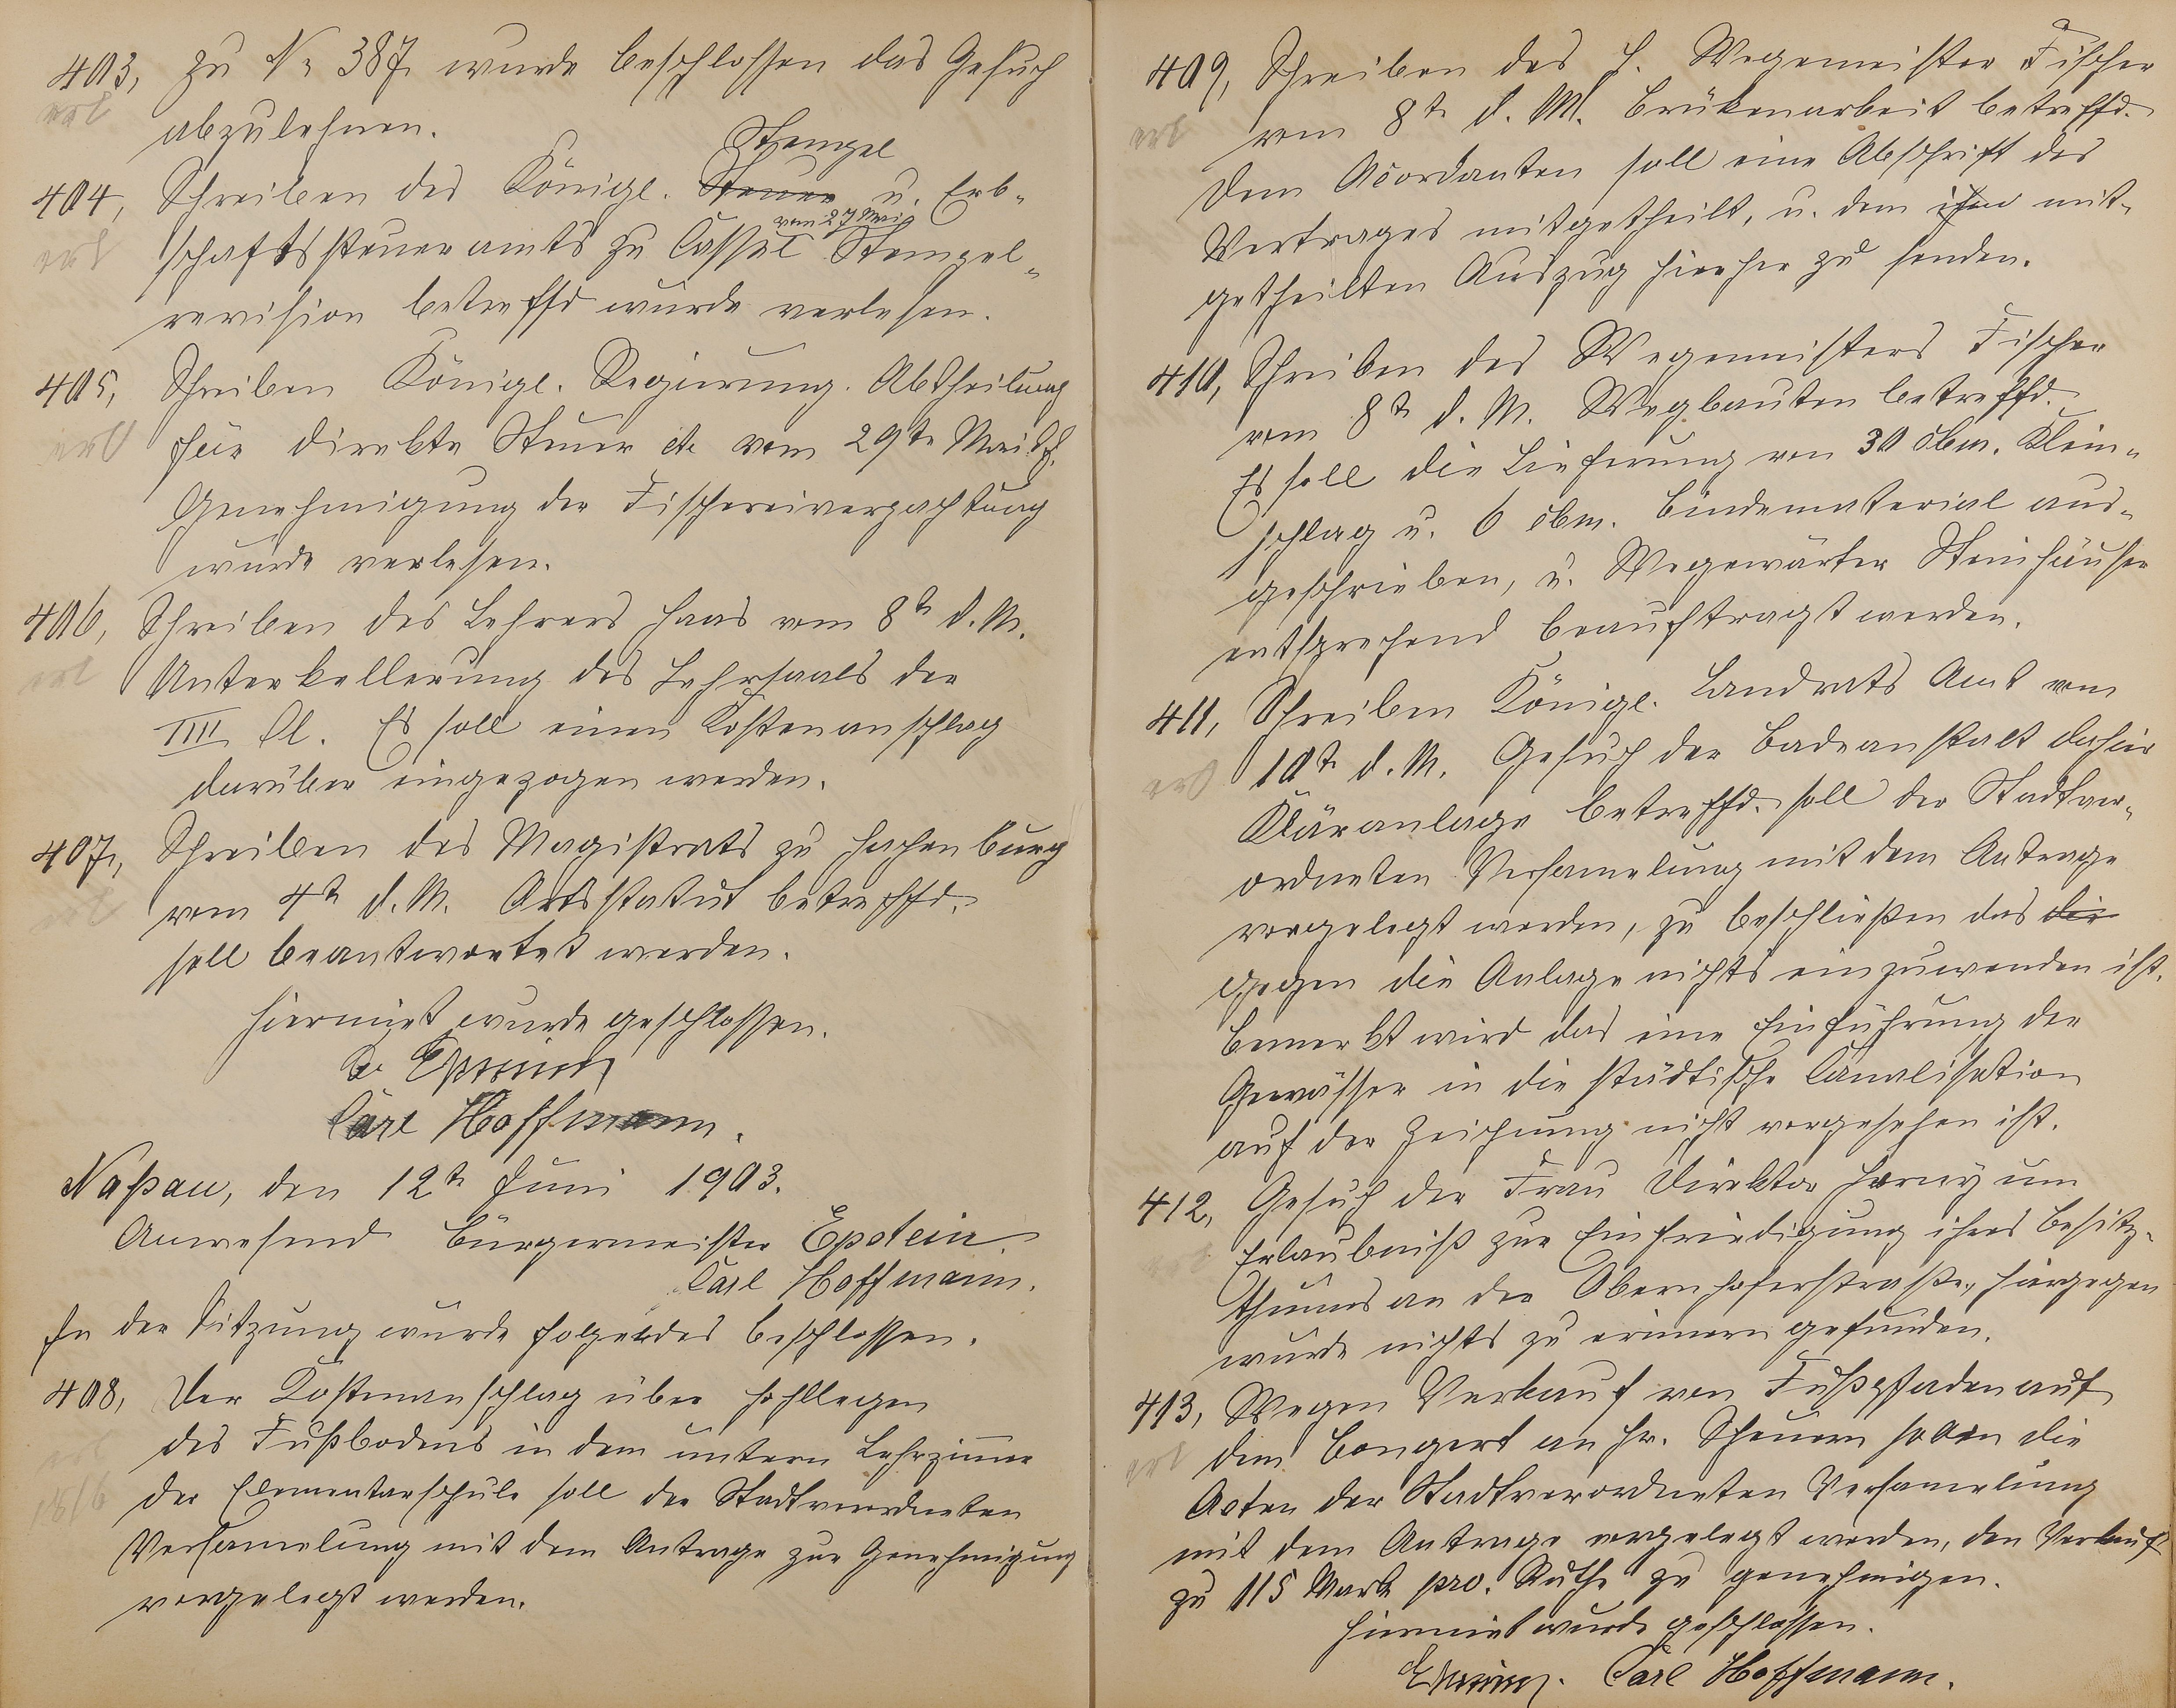 403, zu № 387 wurde beschlossen das Gesuch
erl
abzulehnen.
Stempel
404, Schreiben des Königl. Steuer u. Erb-
vom 27 Mai
erl schaftssteueramts zu Cassel Stempel-
revision betreffd wurde verlesen.
405, Schreiben Königl. Regierung. Abtheilung
erl für direkte Steuer etc vom 29te Mai
Genehmigung der Fischereiverpachtung
wurde verlesen.
406, Schreiben des Lehrers Haas vom 8te d. M.
erl Unterkellerung des Lehrsaals der
IIII Cl. Es soll einen Kostenanschlag
darüber eingezogen werden.
407, Schreiben des Magistrats zu Hachenburg
erl vom 4te d. M. Ortsstatut betreffd.
soll beantwortet werden.
Hiermit wurde geschlossen.
Epstein
Carl Hoffmann.
Naßau, den 12te Juni 1903.
Anwesend Bürgermeister Epstein.
Carl Hoffmann.
In der Sitzung wurde folgendes beschlossen.
408, Der Kostenanschlag über Hohllegen
erl des Fußbodens in dem untern Lehrzimmer
18/6 der Elementarschule soll der Stadtverordneten
Versamelung mit dem Antrage zur Genehmigung
vorgelegt werden.
409, Schreiben des H. Wegemeister Fischer
erl vom 8te d. M. Brükenarbeit betreffd.
Dem Acordanten soll eine Abschrift des
Vertrages mitgetheilt, u. dem ihm mit-
getheilten Auszug hierher zu senden.
410, Schreiben des Wegemeisters Fischer
vom 8te d. M. Wegbauten betreffd.
Es soll die Lieferung von 30 cbm. Klein-
schlag u. 6 cbm. Bindematerial aus-
geschrieben, u. Wegewärter Steinhäuser
entsprechend beauftragt werden.
411, Schreiben Königl. Landrats Amt vom
erl 10te d. M. Gesuch der Badeanstalt dahier
Kläranlage betreffd. soll der Stadtver-
ordneten Versamelung mit dem Antrage
vorgelegt werden, zu beschließen das die
gegen die Anlage nichts einzuwenden ist.
Bemerkt wird das eine Einführung der
Gewässer in die städtische Canalisation
auf der Zeichnung nicht vorgesehen ist.
412, Gesuch der Frau Direktor Horny um
Erlaubniß zur Einfriedigung ihres Besitz-
thums an der Obernhoferstraße, hiergegen
wurde nichts zu erinnern gefunden.
413, Wegen Verkauf von Fußpfaden auf
erl dem Bongert an Hr. Scheuern sollen die
Acten der Stadtverordneten Versamelung
mit dem Antrage vorgelegt werden, den Verkauf
zu 115 Mark pro. Ruthe zu genehmigen.
Hiermit wurde geschlossen.
Epstein. Carl Hoffmann.